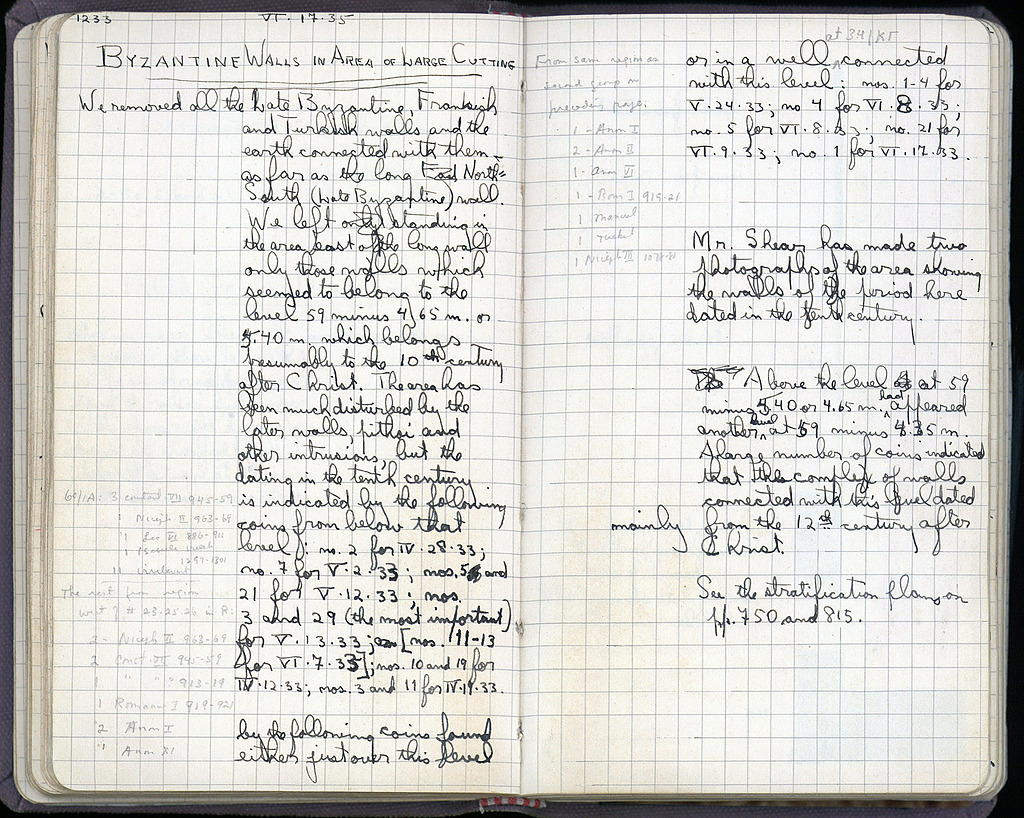 1233
VI·17·35
BYZANTINE WALLS IN AREA OF LARGE CUTTING
We removed all the Late Byzantine, Frankish
and Turkish walls and the
earth connected with them
as far as the long East North-
South (Late Byzantine) wall.
We left only standing in
the area east of the long wall
only those walls which
seemed to belong to the
level 59 minus 4.65 m. or
5.40 m. which belongs
presumably to the 10th century
after Christ. The area has
been much disturbed by the
later walls, pithoi and
other intrusions, but the
dating in the tenth century
is indicated by the following
coins from below that
level: no. 2 for IV·28·33;
no. 7 for V·2·33; nos. 5 and
21 for V·12·33; nos.
3 and 29 (the most important)
for V·13·33; [nos. 11-13
for VI·7·33]; nos. 10 and 19 for
IV·12·33; nos. 3 and 11 for IV·19·33.
by the following coins found
either just over this level
3 const VII 945-59
1 Niceph II 963-69
1 Leo VI 886-911
The rest from region
west of # 23·25·26 in R:
2 - Niceph II 963-69
2 Const VII 945-59
1 " " ? 913-19
1 Romanus I 919-921
2 Anon I
1 Anon VI
at 34/ΚΓ
or in a well connected
with this level: nos. 1-4 for
V·24·33; no 4 for VI·8·33;
no. 5 for VI·8·33; no. 21 for
VI·9·33; no. 1 for VI·17·33.
From same region as
second group on
preceding page.
1 - Anon I
2 - Anon II
1 - Anon VI
1 - Rom I 919-21
1 Manuel
1 Turkish
1 Niceph III 1078-81
Mr. Shear has made two
photographs of the area showing
the walls of the period here
dated in the tenth century.
Above the level at 59
minus 5.40 or 4.65 m. had appeared
another level at 59 minus 4.35 m.
A large number of coins indicated
that the complex of walls
connected with this level dated
mainly from the 12th century after
Christ.
See the stratification plans on
pp. 750 and 815.